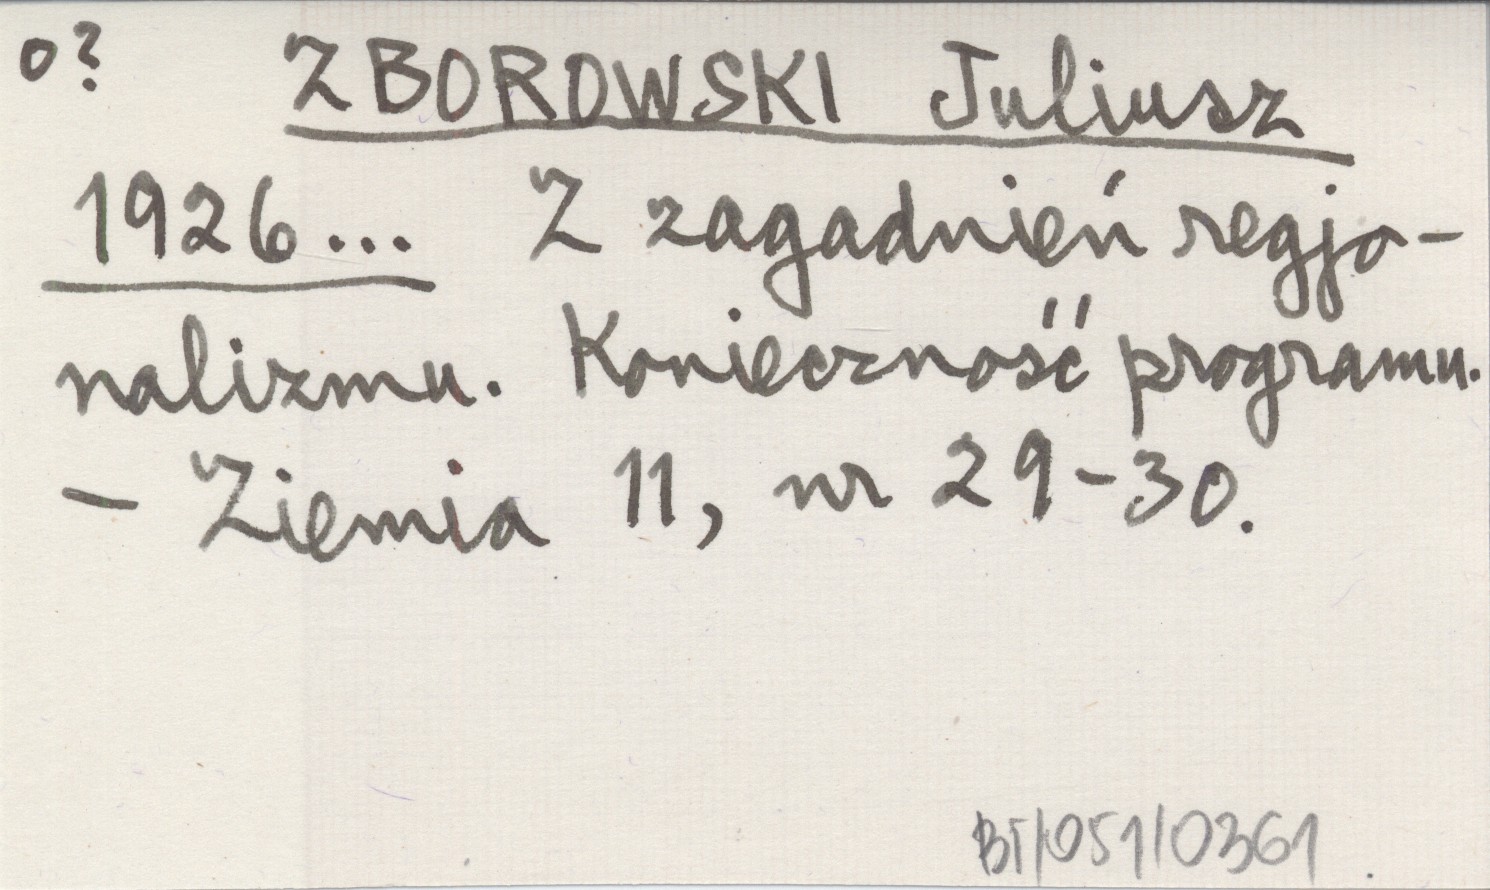 o? ZBOROWSKI Juliusz
1926... Z zagadnień regjo-
nalizmu. Konieczność programu.
- Ziemia 11, nr 29-30.
BT/051/0361